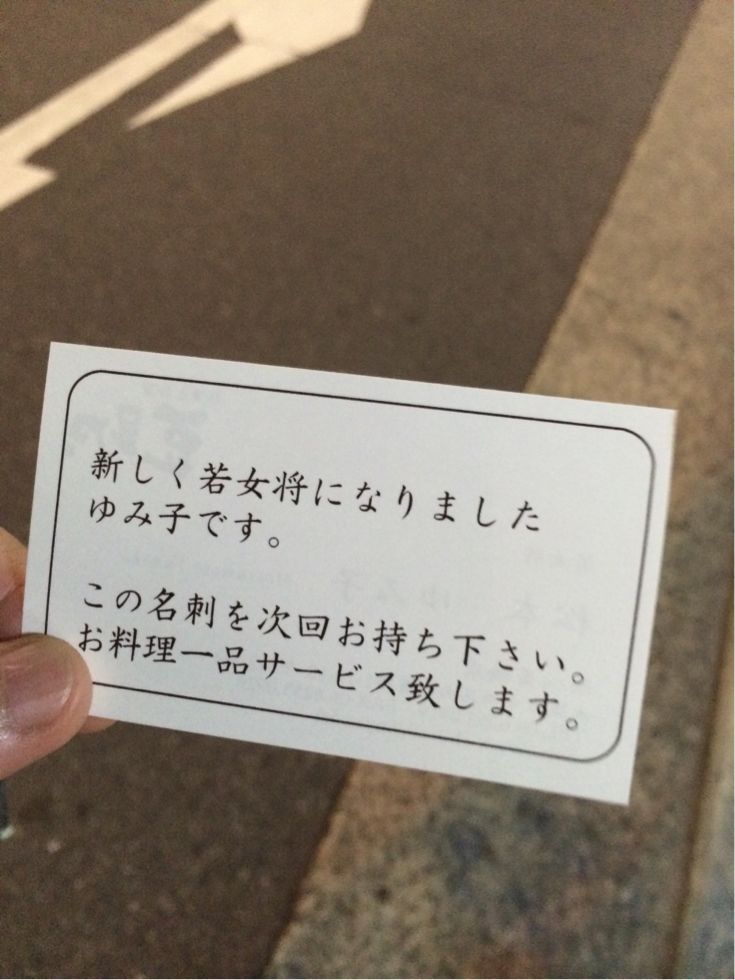 新しく若女将になりました
ゆみ子です。
この名刺を次回お持ち下さい。
お料理一品サービス致します。